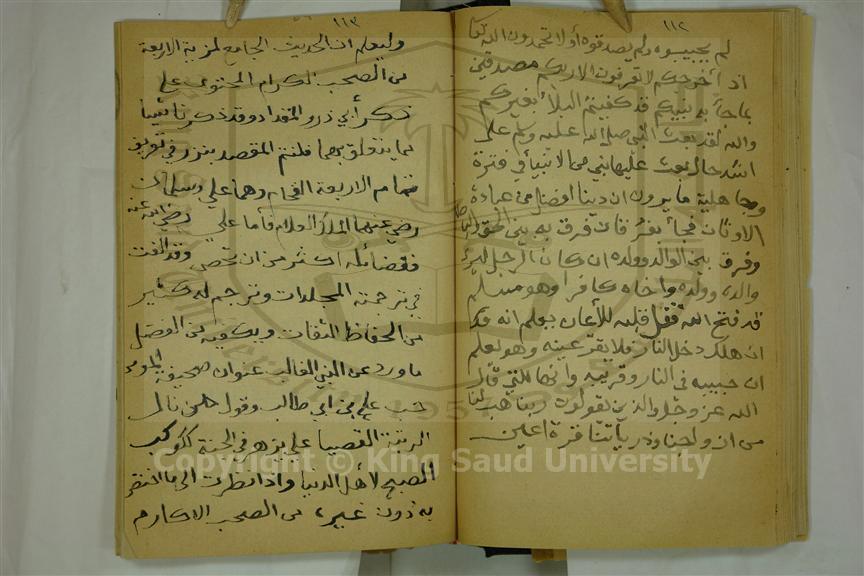 ١١٢
لم يجيبوه ولم يصدقوه أولا تحمدون الله
اذ أخرجكم لا تعرفون الا ربكم مصدقين
بما جاء به نبيكم قد كفيتم البلاء بغيركم
والله لقد بعث النبي صلى الله عليه وسلم على
اشد حال بعث عليها نبي من الانبيا في فترة
وجاهلية ما يرون ان دينا افضل من عبادة
الاوثان فجاء بفرقان فرق به بين الحق
وفرق بين الوالد وولده ان كان الرجل ليرى
والده وولده واخاه كافرا وهو مسلم
قد فتح الله قفل قلبه للأيمان يعلم انه
ان هلك دخل النار فلا يقر عينه وهو يعلم
ان حبيبه في النار وانها للتي قال
الله عز وجل والذين يقولون ربنا هب لنا
من ازواجنا وذرياتنا قرة اعين
١١٣
وليعلم ان الحديث الجامع لمزية الاربعة
من الصحب الكرام المحتوى على
ذكر أبي ذر والمقداد وقد ذكرنا شيا
مما يتعلق بهما فلنتم المقصد بنزر في تعريف
تمام الاربعة الفخام وهما علي وسلمان
رضي عنهما الملك العلام فأما علي رضي الله عنه
ففضائله اكثر من ان تحصى وقد الفت
في ترجمته المجلدات وترجم له كثير
من الحفاظ الثقات ويكفيه من الفضل
ما ورد عن النبي الغالب عنوان صحيفة المؤمن
حب علي بن ابي طالب وقول من نال
الرتبة القصيا علي يزهر في الجنة ككوكب
الصبح لأهل الدنيا واذا نظرت الى ما اختص
به دون غيره من الصحب الاكارم
Copyright © King Saud University
1957